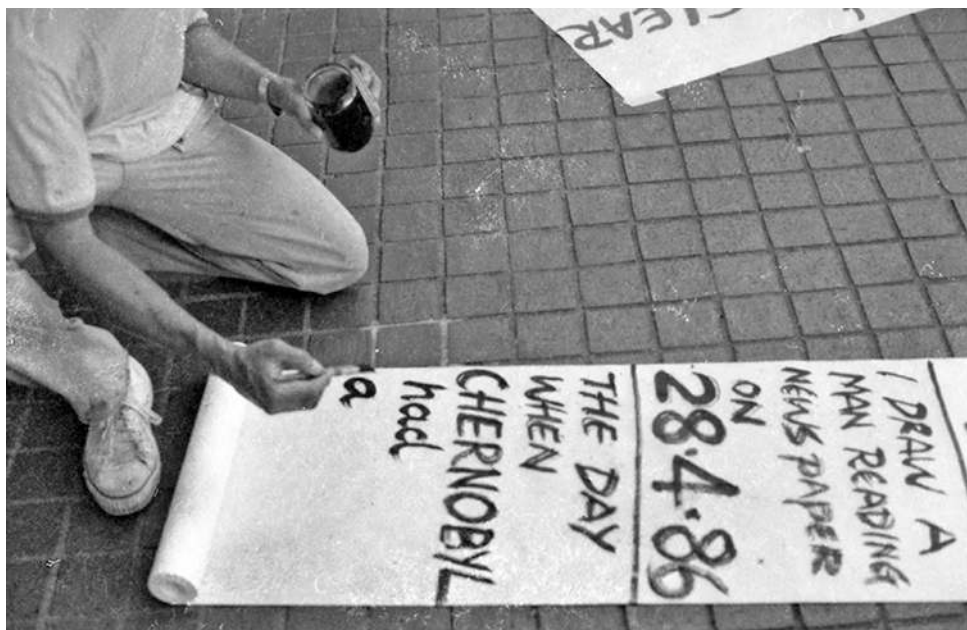 CLEAR
I DRAW A
MAN READING
NEWS PAPER
ON
28.4.86
THE DAY
WHEN
CHERNOBYL
had
a